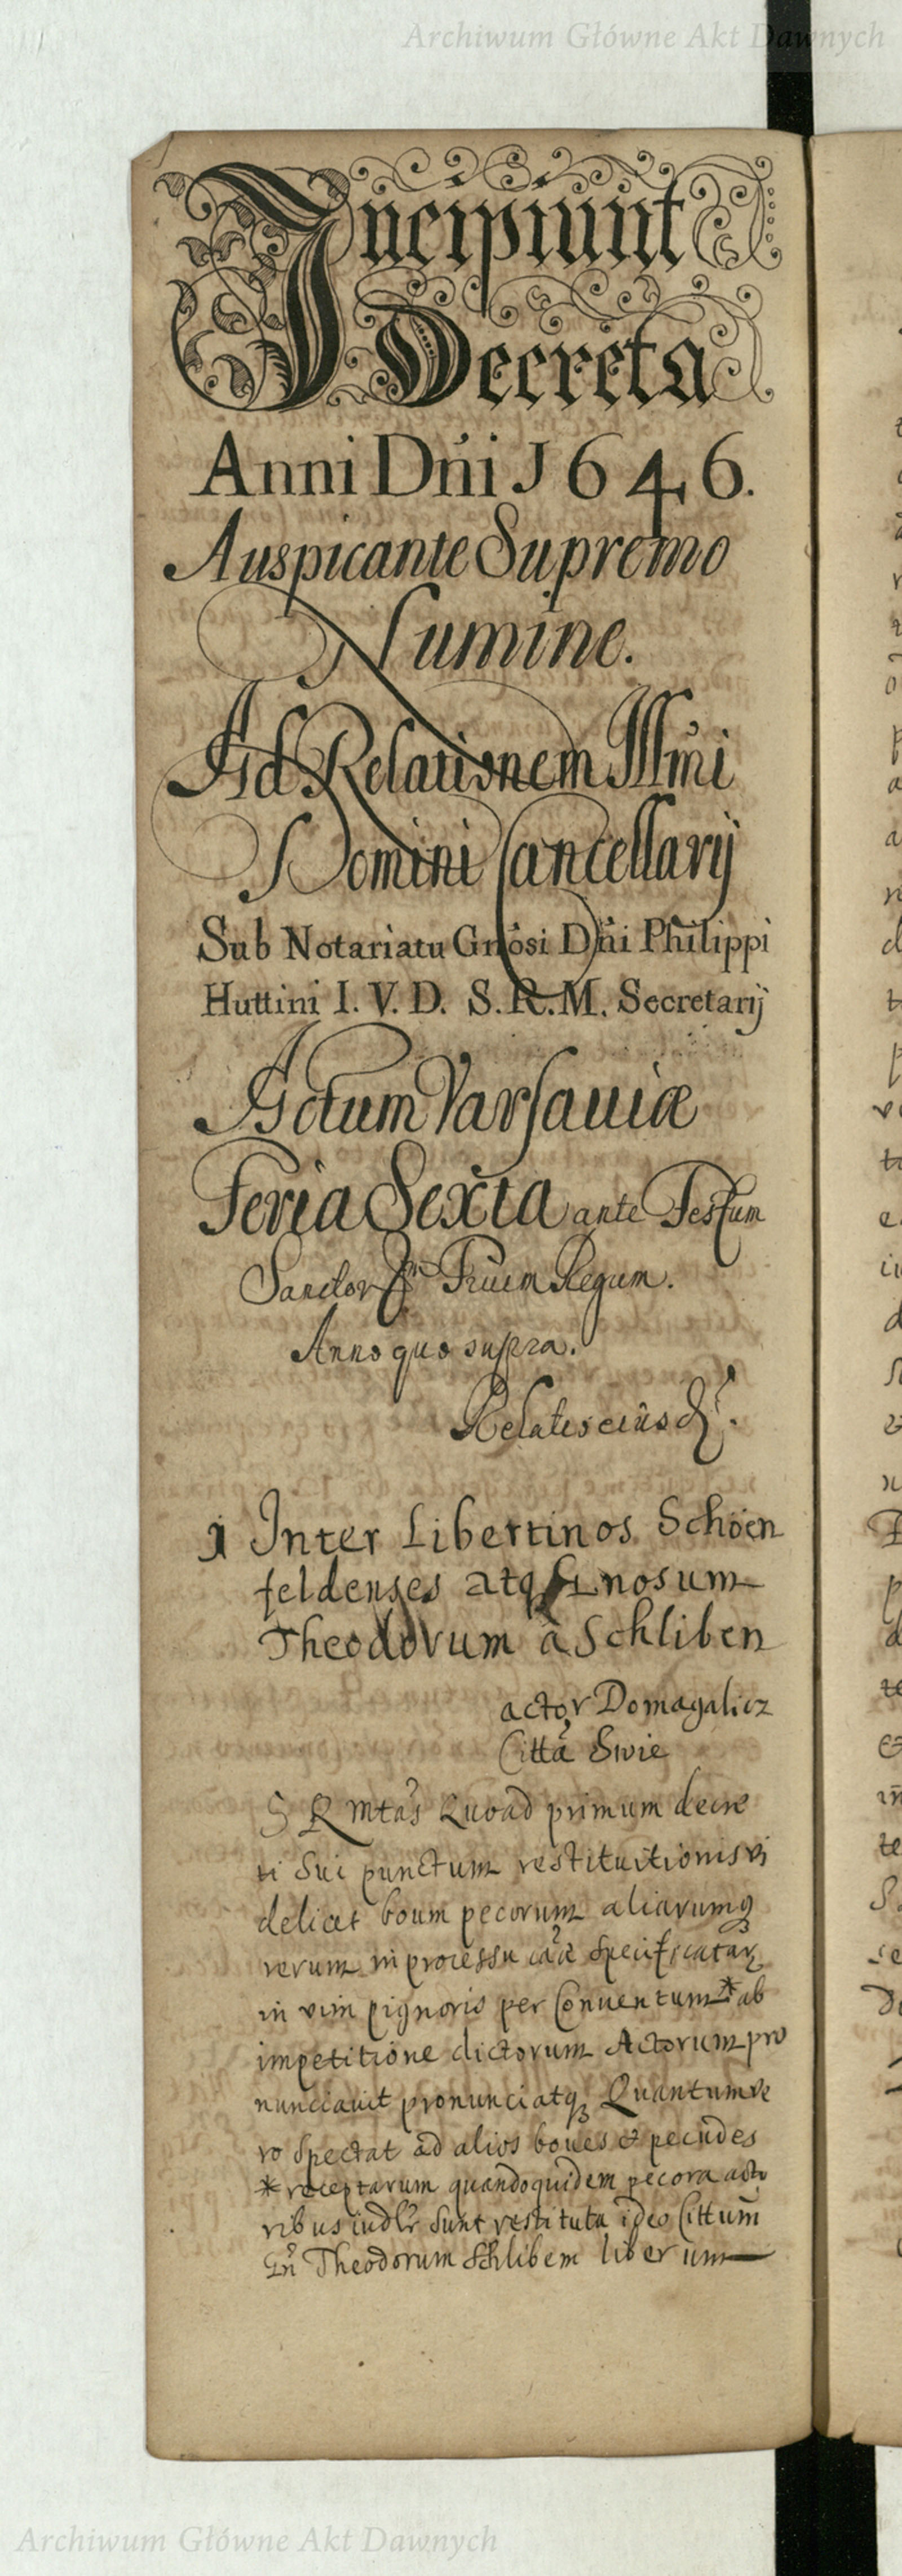 Archiwum Główne Akt Dawnych
Incipiunt
Decreta
Anni Dńi J646.
Auspicante Supremo
Numine.
Ad Relationem Illmi
Domini Cancellarij
Sub Notariatu Gnosi Dńi Philippi
Huttini I. V. D. S. R. M. Secretarij
Actum Varsauiæ
Feria Sexta ante Festum
Sanctor Trium Regum.
Anno quo supra.
Relatis eius
1 Inter Libertinos Schöen
feldenses atq Gnosum
Theodorum à Schliben
actor Domagalicz
Citta Swie
S R Mtas Quoad primum decre
ti sui punctum restituitionis vi
delicet boum pecorum aliarumq
rerum in processu specificatar
in vim pignoris per Conuentum * ab
impetitione dictorum Actorum pro
nunciauit pronunciatq Quantum ve
ro spectat ad alios boues & pecudes
* receptarum quandoquidem pecora acto
ribus iudlr sunt restituta ideo Cittum
Gn Theodorum Schlibem liberum
Archiwum Główne Akt Dawnych